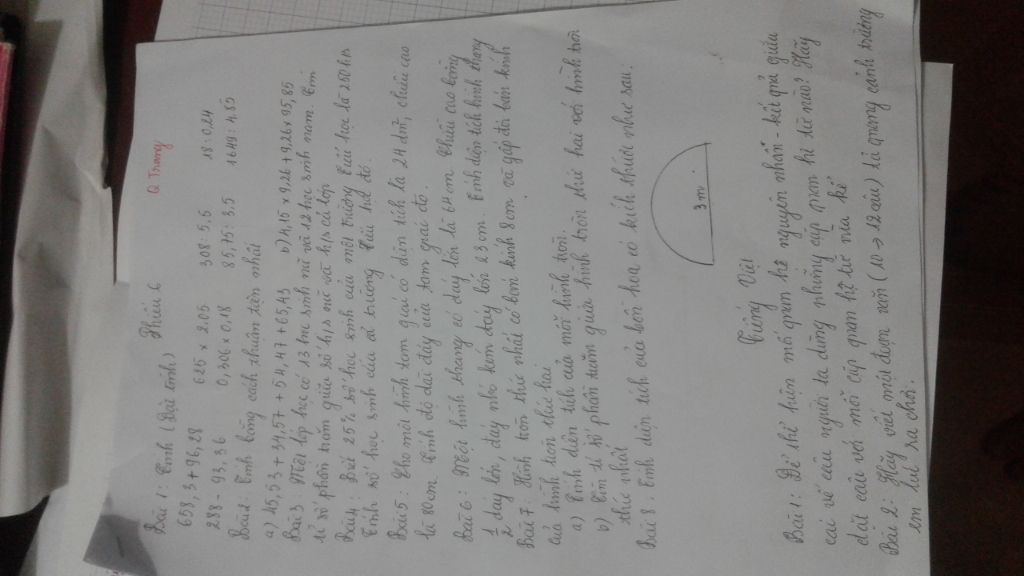 Q Trang
Phiếu 6
Bài 1: Tính (Đặt tính)
658,3 + 96,28 625 x 2,05 308 : 5,5 18 : 0,24
288 - 93,36 0,306 x 0,18 85,75 : 3,5 1649 : 4,85
Bài 2: Tính bằng cách thuận tiện nhất
a) 45,53 + 34,57 + 54,47 + 65,43 b) 4,15 x 9,26 + 9,26 x 95,85
Bài 3: Một lớp học có 13 học sinh nữ và 12 học sinh nam. Tìm
tỉ số phần trăm giữa số h/s nữ và h/s cả lớp
Bài 4: Biết 25% số học sinh của một trường Tiểu học là 250 h/s
Tính số học sinh của cả trường Tiểu học đó.
Bài 5: Cho một hình tam giác có diện tích là 24 dm², chiều cao
là 80 cm. Tính độ dài đáy của tam giác đó.
Bài 6: Một hình thang có đáy lớn là 64 cm. Chiều cao bằng
1/2 đáy lớn, đáy nhỏ kém đáy lớn 23 cm. Tính diện tích hình thang
Bài 7: Hình tròn thứ nhất có bán kính 8 cm và gấp đôi bán kính
của hình tròn thứ hai
a) Tính diện tích của mỗi hình tròn.
b) Tìm tỉ số phần trăm giữa hình tròn thứ hai với hình tròn
thứ nhất
Bài 8: Tính diện tích của bồn hoa có kích thước như sau.
3 m
Tiếng Việt
Bài 1: Để thể hiện mối quan hệ nguyên nhân - kết quả giữa
các vế câu người ta dùng những cặp quan hệ từ nào? Hãy
đặt câu với mỗi cặp quan hệ từ vừa kể
Bài 2: Hãy viết một đoạn văn (10 -> 12 câu) tả quang cảnh trường
em lúc ra chơi.